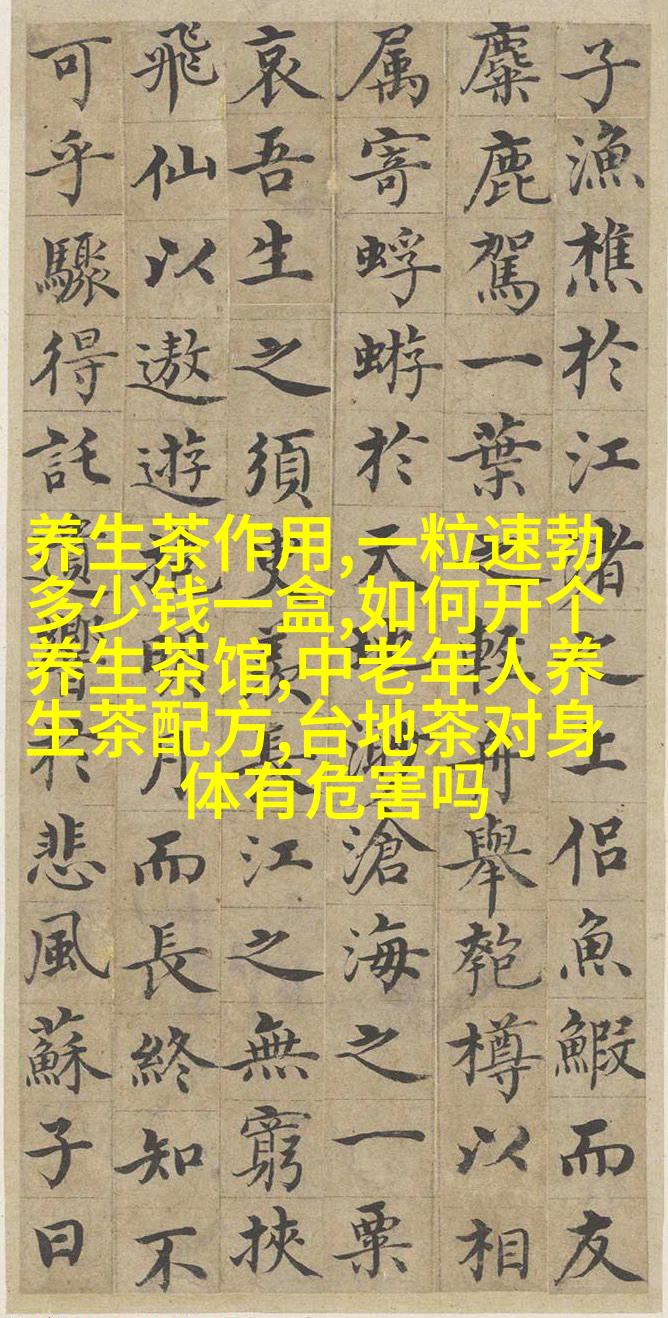 子漁樵於江渚之上侶魚鰕而友
麋鹿駕一葉之輕舟舉匏樽以相
属寄蜉蝣於天地渺滄海之一粟
哀吾生之須臾羨長江之無窮挾
飛仙以遨遊抱明月而長終知不
可乎驟得託遺響於悲風蘇子曰
养生茶作用,一粒速勃
多少钱一盒,如何开个
养生茶馆,中老年人养
生茶配方,台地茶对身
体有危害吗